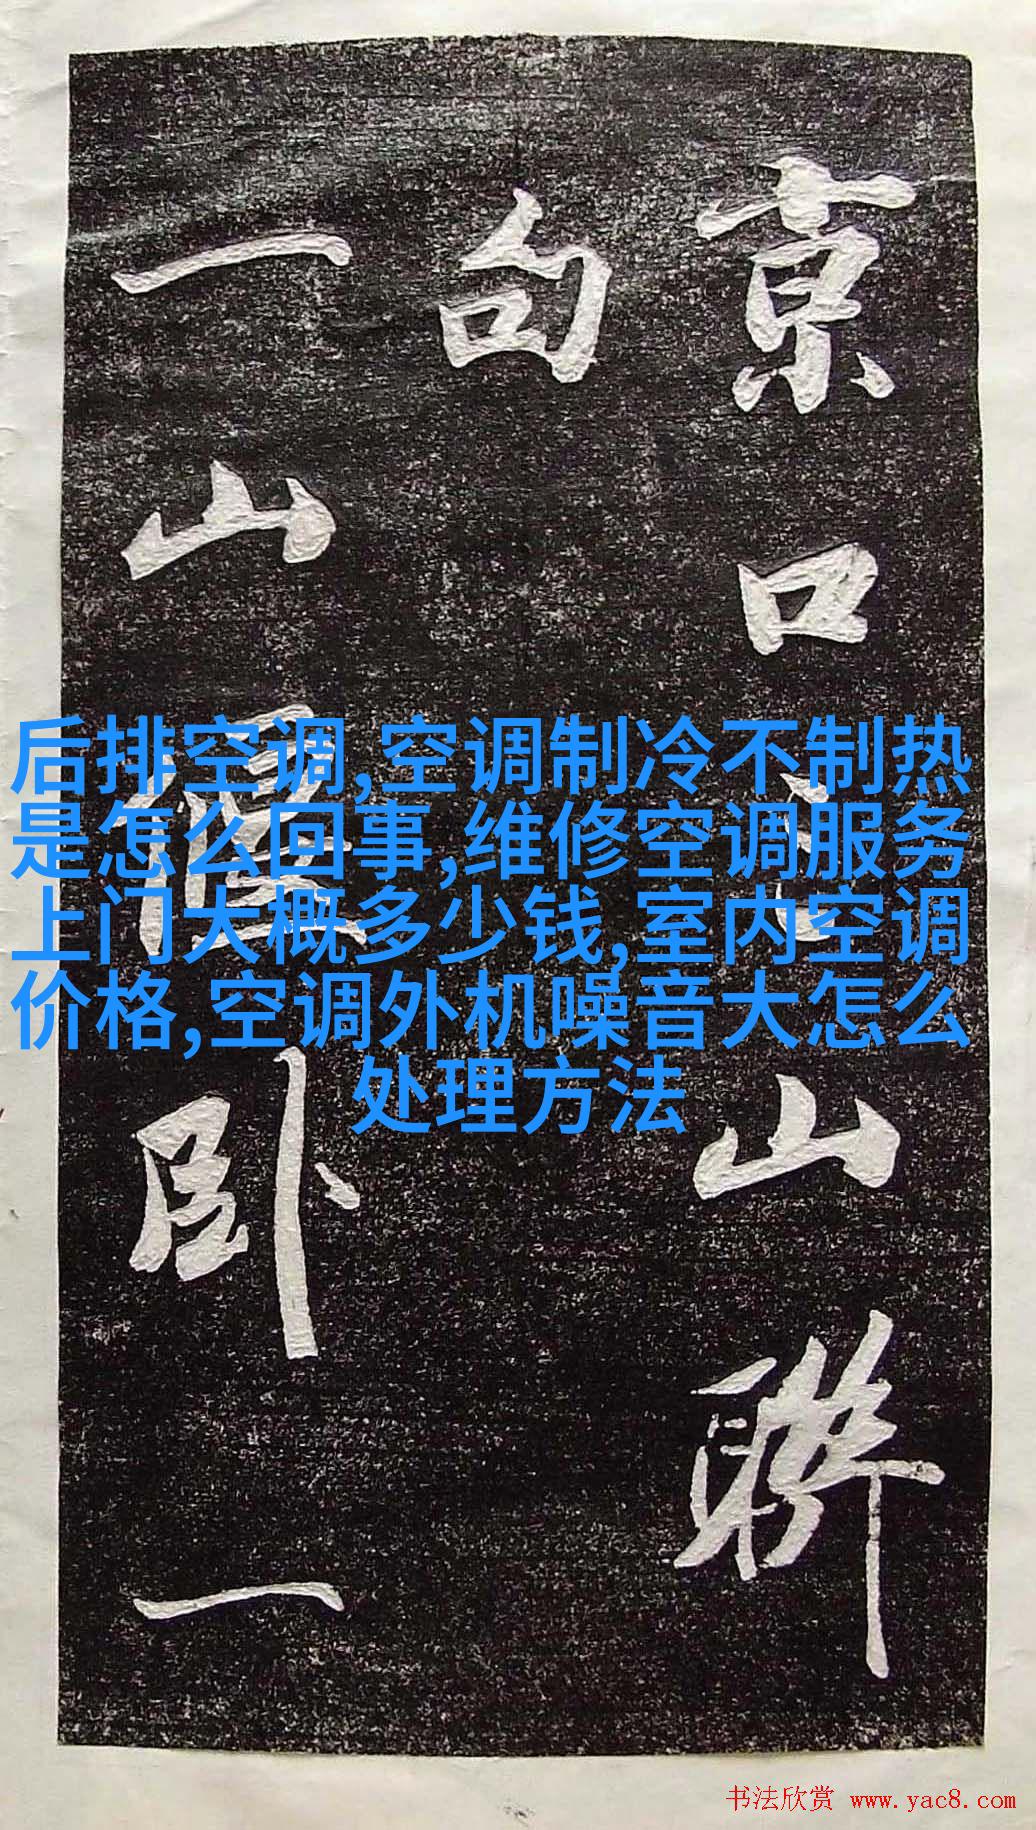 京口北山联
句
一山偃卧一
后排空调,空调制冷不制热
是怎么回事,维修空调服务
上门大概多少钱,室内空调
价格,空调外机噪音大怎么
处理方法
书法欣赏 www.yac8.com